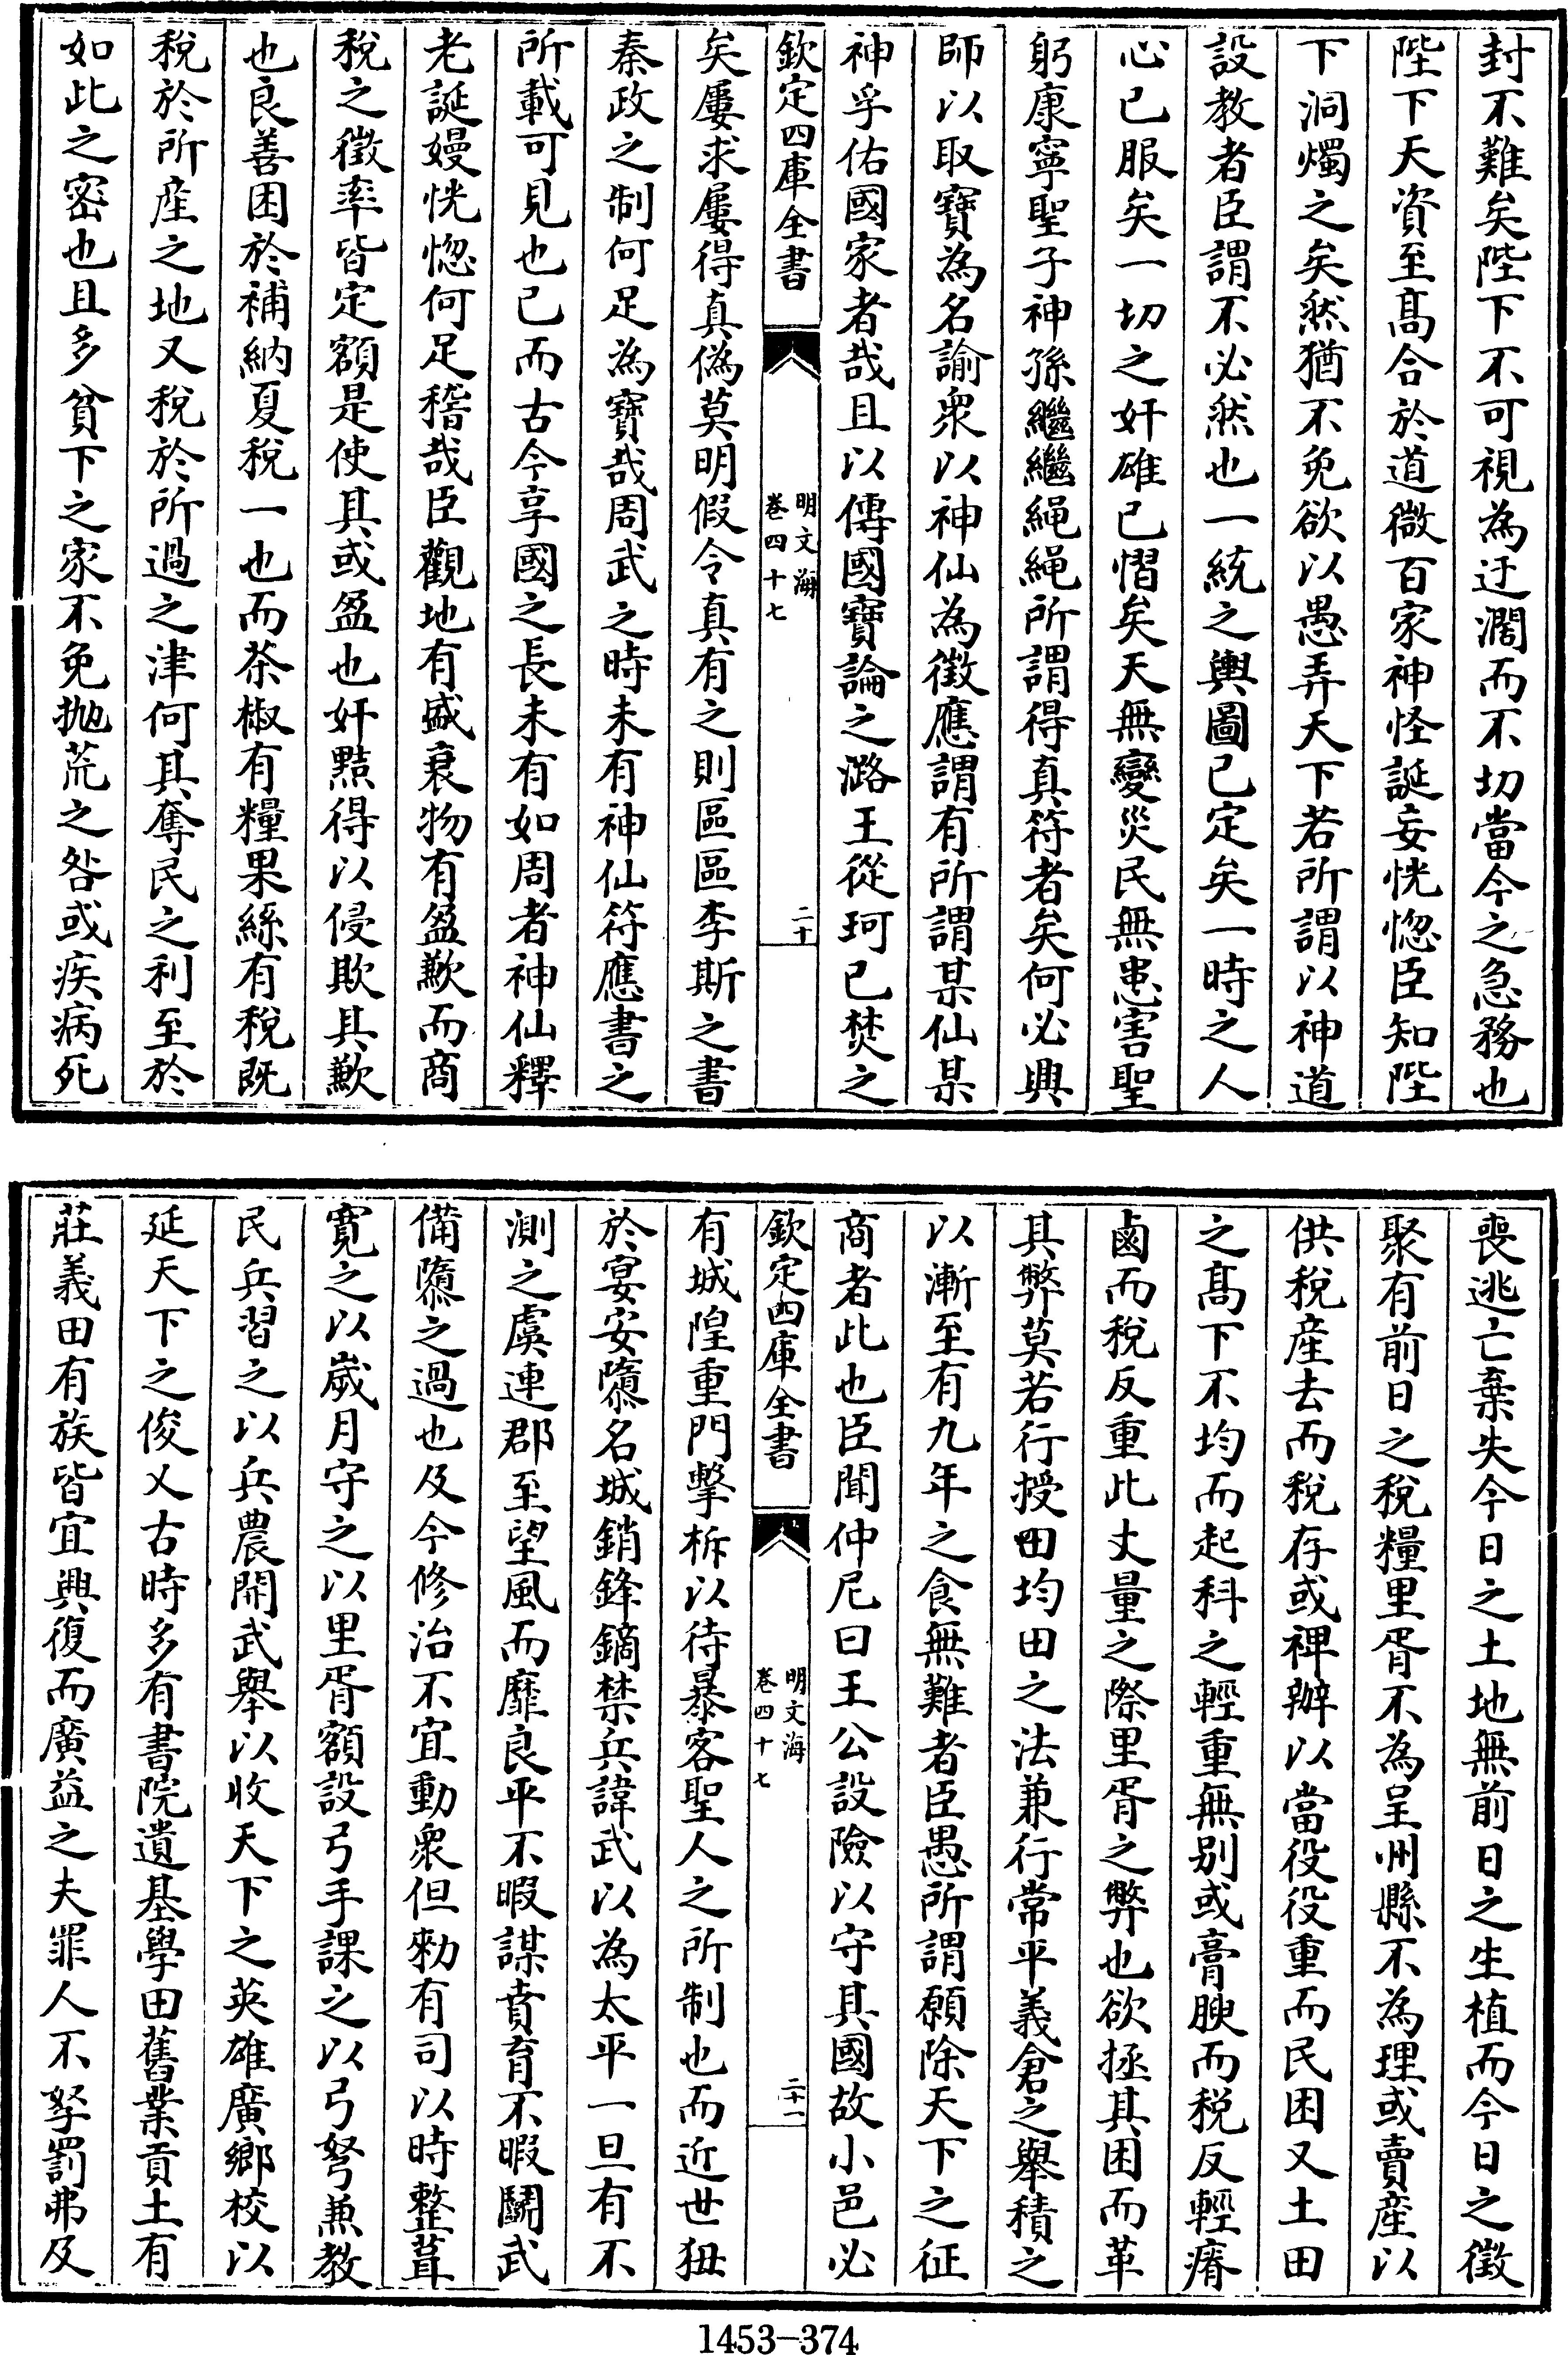 封不難矣陛下不可視為迂濶而不切當今之急務也
陛下天資至髙合於道微百家神怪誕妄恍惚臣知陛
下洞燭之矣然猶不免欲以愚弄天下若所謂以神道
設教者臣謂不必然也一統之輿圖已定矣一時之人
心已服矣一切之奸雄已慴矣天無變災民無患害聖
躬康寧聖子神孫繼繼繩繩所謂得真符者矣何必興
師以取寶為名諭衆以神仙為徵應謂有所謂某仙某
神孚佑國家者哉且以傳國寶論之潞王從珂已焚之
欽定四庫全書
明文海
卷四十七
二十
矣屢求屢得真偽莫明假令真有之則區區李斯之書
秦政之制何足為寶哉周武之時未有神仙符應書之
所載可見也已而古今享國之長未有如周者神仙釋
老誕嫚恍惚何足稽哉臣觀地有盛衰物有盈歉而商
稅之徵率皆定額是使其或盈也奸黠得以侵欺其歉
也良善困於補納夏稅一也而茶椒有糧果絲有稅既
稅於所產之地又稅於所過之津何其奪民之利至於
如此之密也且多貧下之家不免拋荒之咎或疾病死
喪逃亡棄失今日之土地無前日之生植而今日之徵
聚有前日之稅糧里胥不為呈州縣不為理或賣產以
供稅産去而稅存或裨辦以當役役重而民困又土田
之髙下不均而起科之輕重無别或膏腴而稅反輕瘠
鹵而稅反重此丈量之際里胥之弊也欲拯其困而革
其弊莫若行授田均田之法兼行常平義倉之舉積之
以漸至有九年之食無難者臣愚所謂願除天下之征
商者此也臣聞仲尼曰王公設險以守其國故小邑必
欽定四庫全書
明文海
卷四十七
二十一
有城隍重門擊柝以待暴客聖人之所制也而近世狃
於宴安隳名城銷鋒鏑禁兵諱武以為太平一旦有不
測之虞連郡至望風而靡良平不暇謀賁育不暇鬬武
備隳之過也及今修治不宜動衆但勑有司以時整葺
寛之以嵗月守之以里胥額設弓手課之以弓弩兼教
民兵習之以兵農開武舉以收天下之英雄廣鄉校以
延天下之俊乂古時多有書院遺基學田舊業貢士有
莊義田有族皆宜興復而廣益之夫罪人不孥罰弗及
1453-374